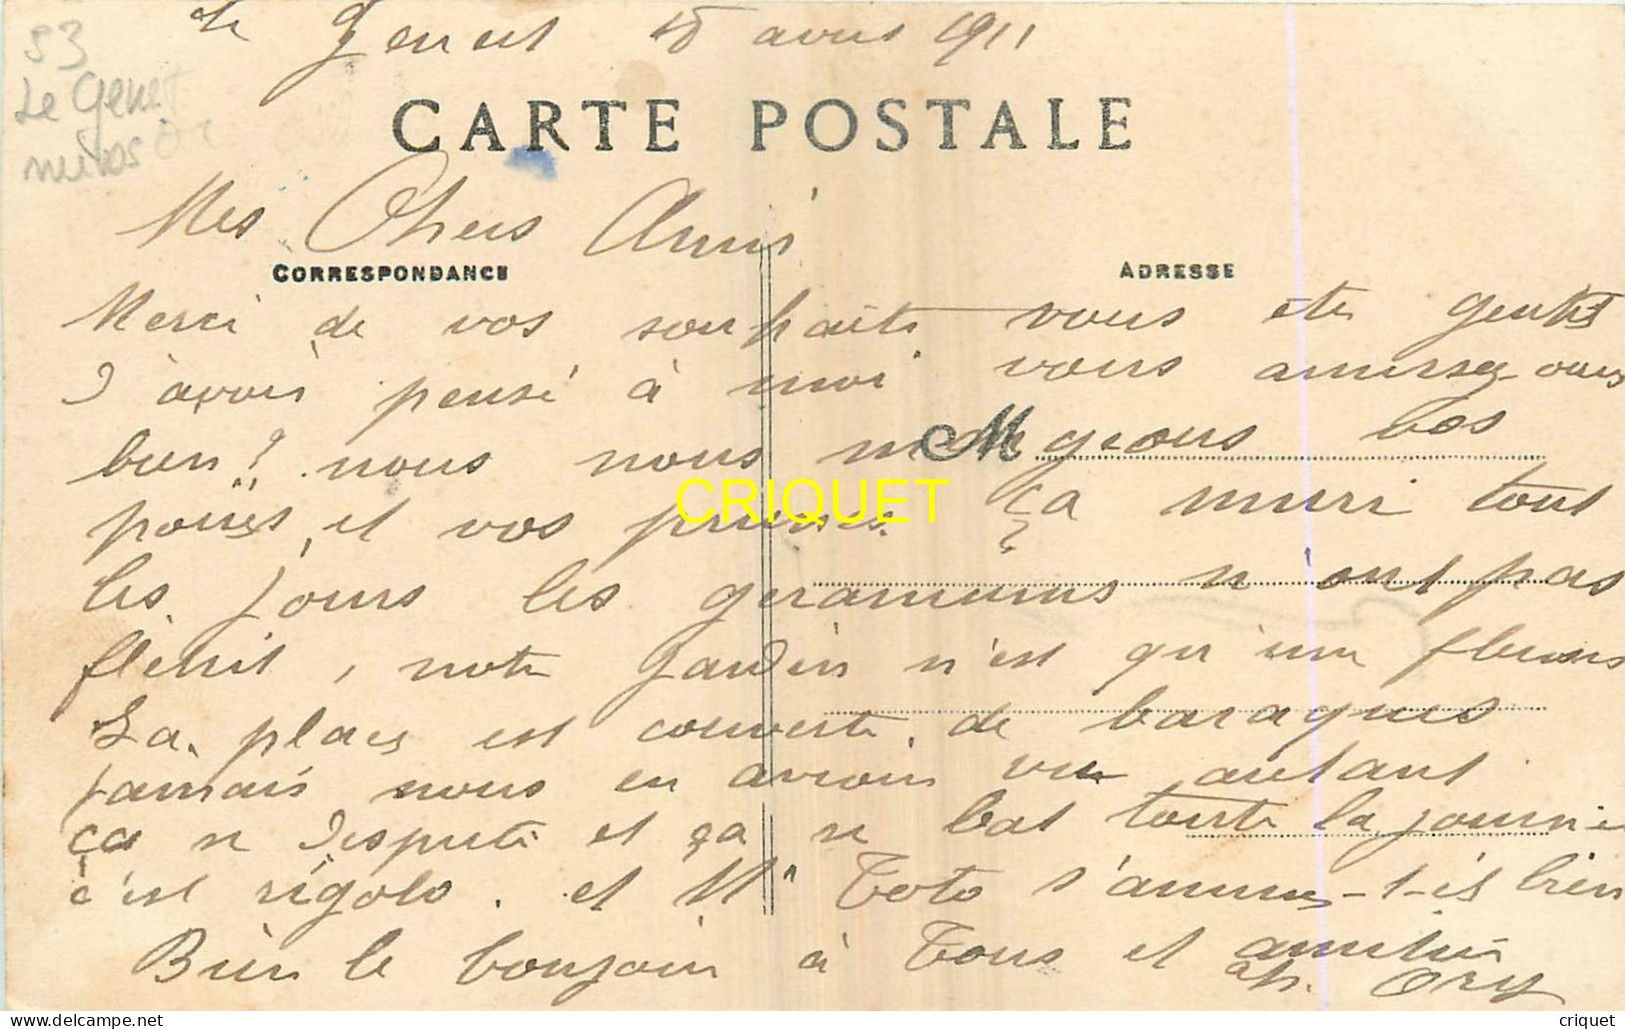 53
Le Genet
mines Or
Le Genest 15 avril 1911
CARTE POSTALE
Mes Chers Amis
CORRESPONDANCE ADRESSE
Merci de vos souhaits vous ete gentils
d'avoir pensé à moi vous amusez vous
bien? nous nous mangeons vos
poires, et vos prunes. ça muri tout
les jours les geramiums n'ont pas
fleurit, notre Jardin n'est qu'une fleurs
La place est couverte de baraques
jamais nous en avoir vu autant
ça se dispute et ça se bat toute la journée
c'est rigolo. et Mr Toto s'amuse-t-il bien
Bien le bonjour à Tous et amitiés
Ory
M
CRIQUET
criquet